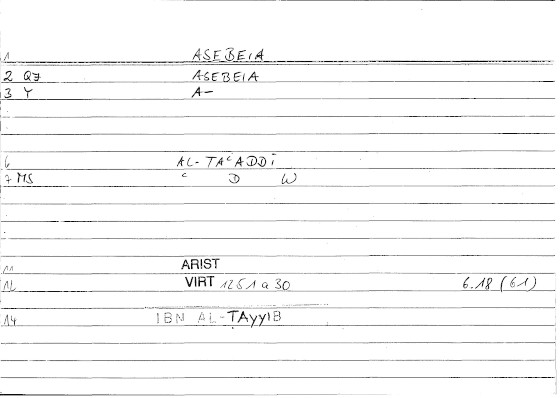 1 ASEBEIA
2 Q7 ASEBEIA
3 Y A-
6 AL-TAʿADDĪ
7 MS ʿ D W
11 ARIST
12 VIRT 1251 a 30 6.18 (61)
14 IBN AL-TAyyIB